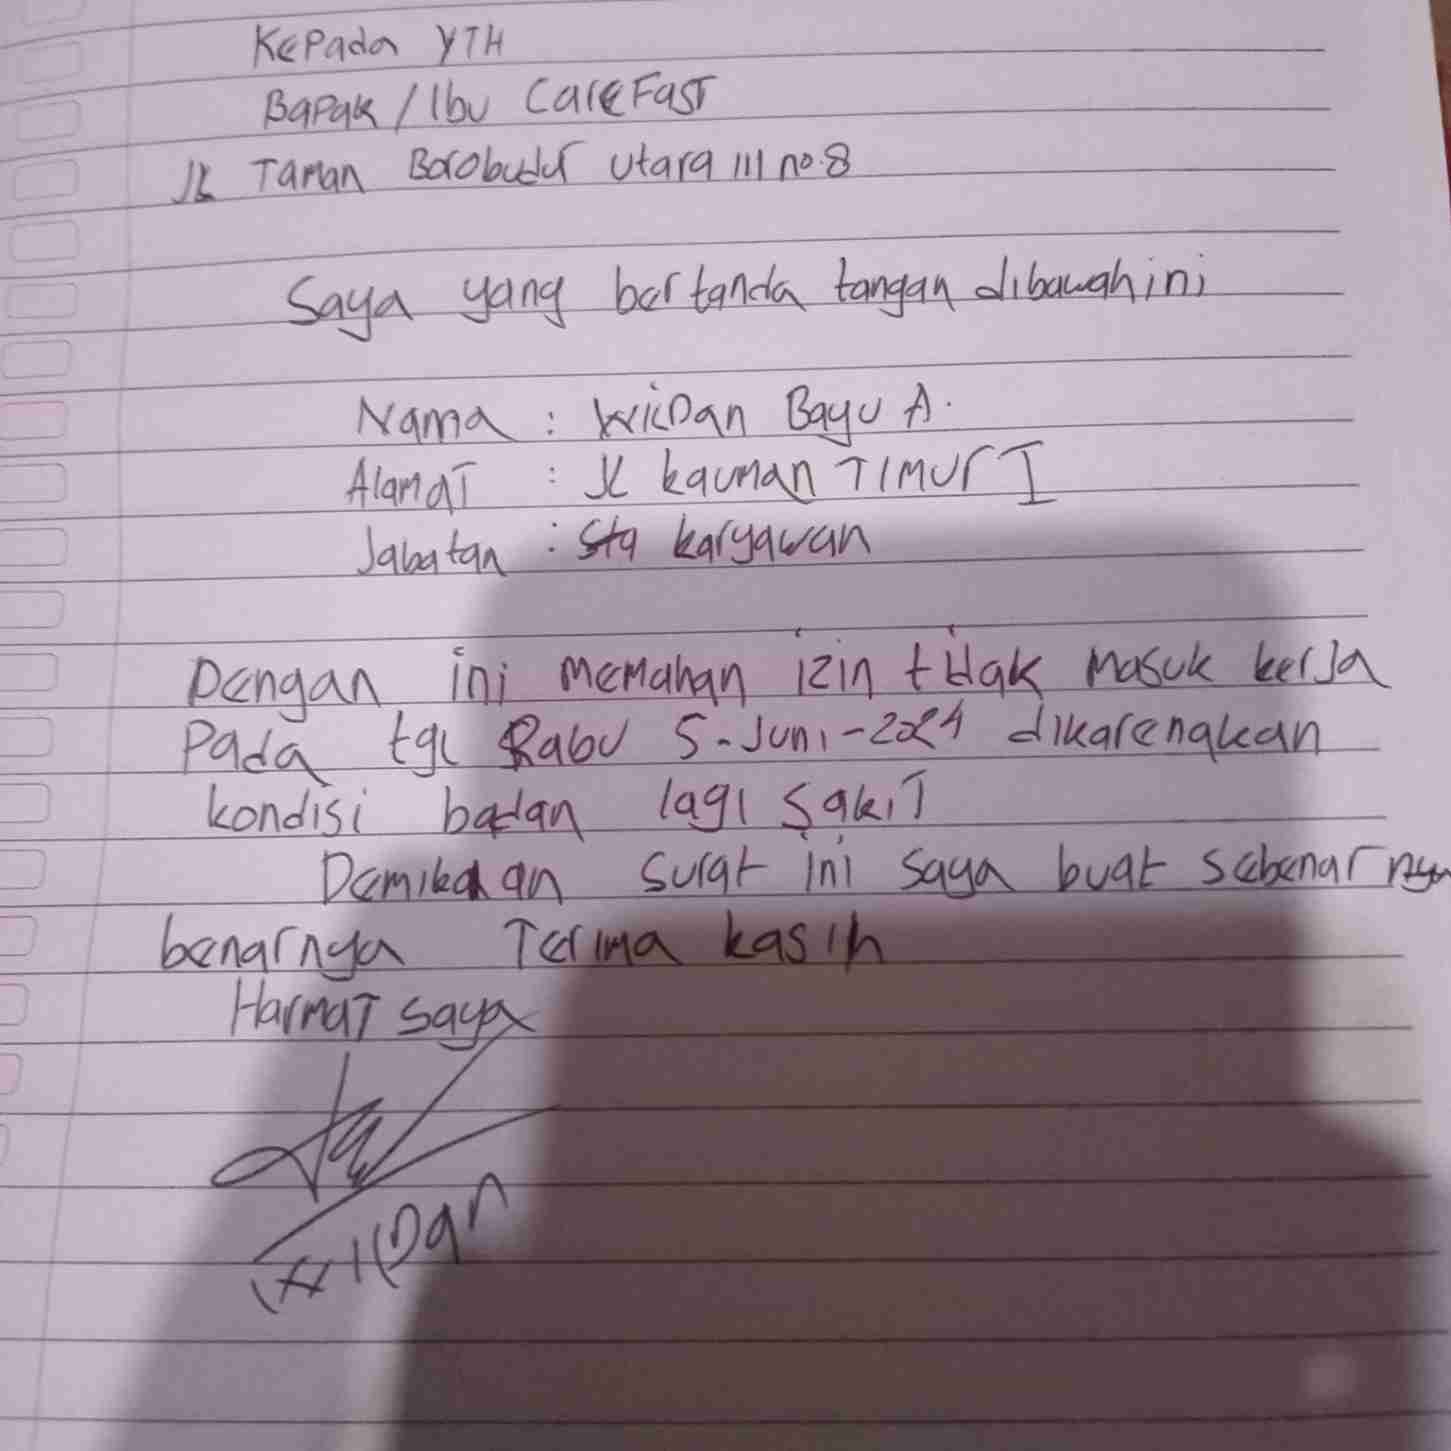 Kepada YTH
Bapak / Ibu CareFast
Jl Taman Borobudur Utara III no.8
Saya yang bertanda tangan dibawah ini
Nama : Wildan Bayu A.
Alamat : Jl kauman Timur I
Jabatan : karyawan
Dengan ini memahan izin tidak masuk kerja
Pada tgl Rabu 5-Juni-2024 dikarenakan
kondisi badan lagi sakit
Demikaan surat ini saya buat sebenarnya
benarnya Terima kasih
Harmat saya
Wildan